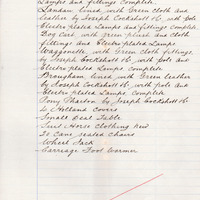 Lamps and fittings complete
Landau lined with Green cloth and
leather by Joseph Cockshott & Co with pole
Electro plated Lamps and fittings complete
Dog Cart with green plush and cloth
fittings and Electro plated Lamps
Waggonette with Green cloth fittings
by Joseph Cockshott & Co with pole and
Electro plated Lamps complete
Brougham lined with Green leather
by Joseph Cockshott & Co with pole and
Electro plated Lamps complete
Pony Phaeton by Joseph Cockshott & Co
Holland covers
Small Deal Table
Suit Horse clothing new
Cane seated chairs
Wheel Jack
Carriage Foot Warmer